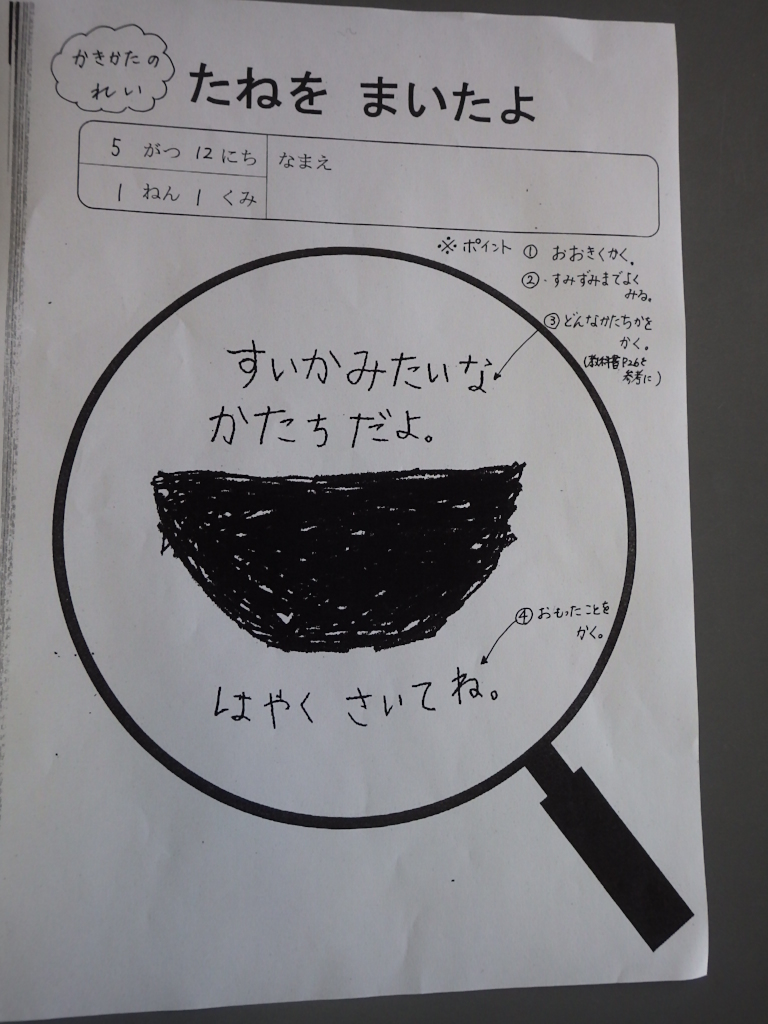 かきかたの
れい
たねを まいたよ
5 がつ 12 にち
なまえ
1 ねん 1 くみ
※ ポイント ① おおきくかく。
② すみずみまでよく
みる。
③ どんなかたちかを
かく。
(教科書P26を
参考に)
すいかみたいな
かたちだよ。
④ おもったことを
かく。
はやく さいてね。